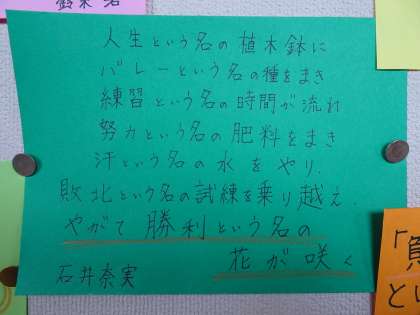 人生という名の植木鉢に
バレーという名の種をまき
練習という名の時間が流れ
努力という名の肥料をまき
汗という名の水をやり.
敗北という名の試練を乗り越え
やがて勝利という名の
花が咲く
石井奈実
「負
とい